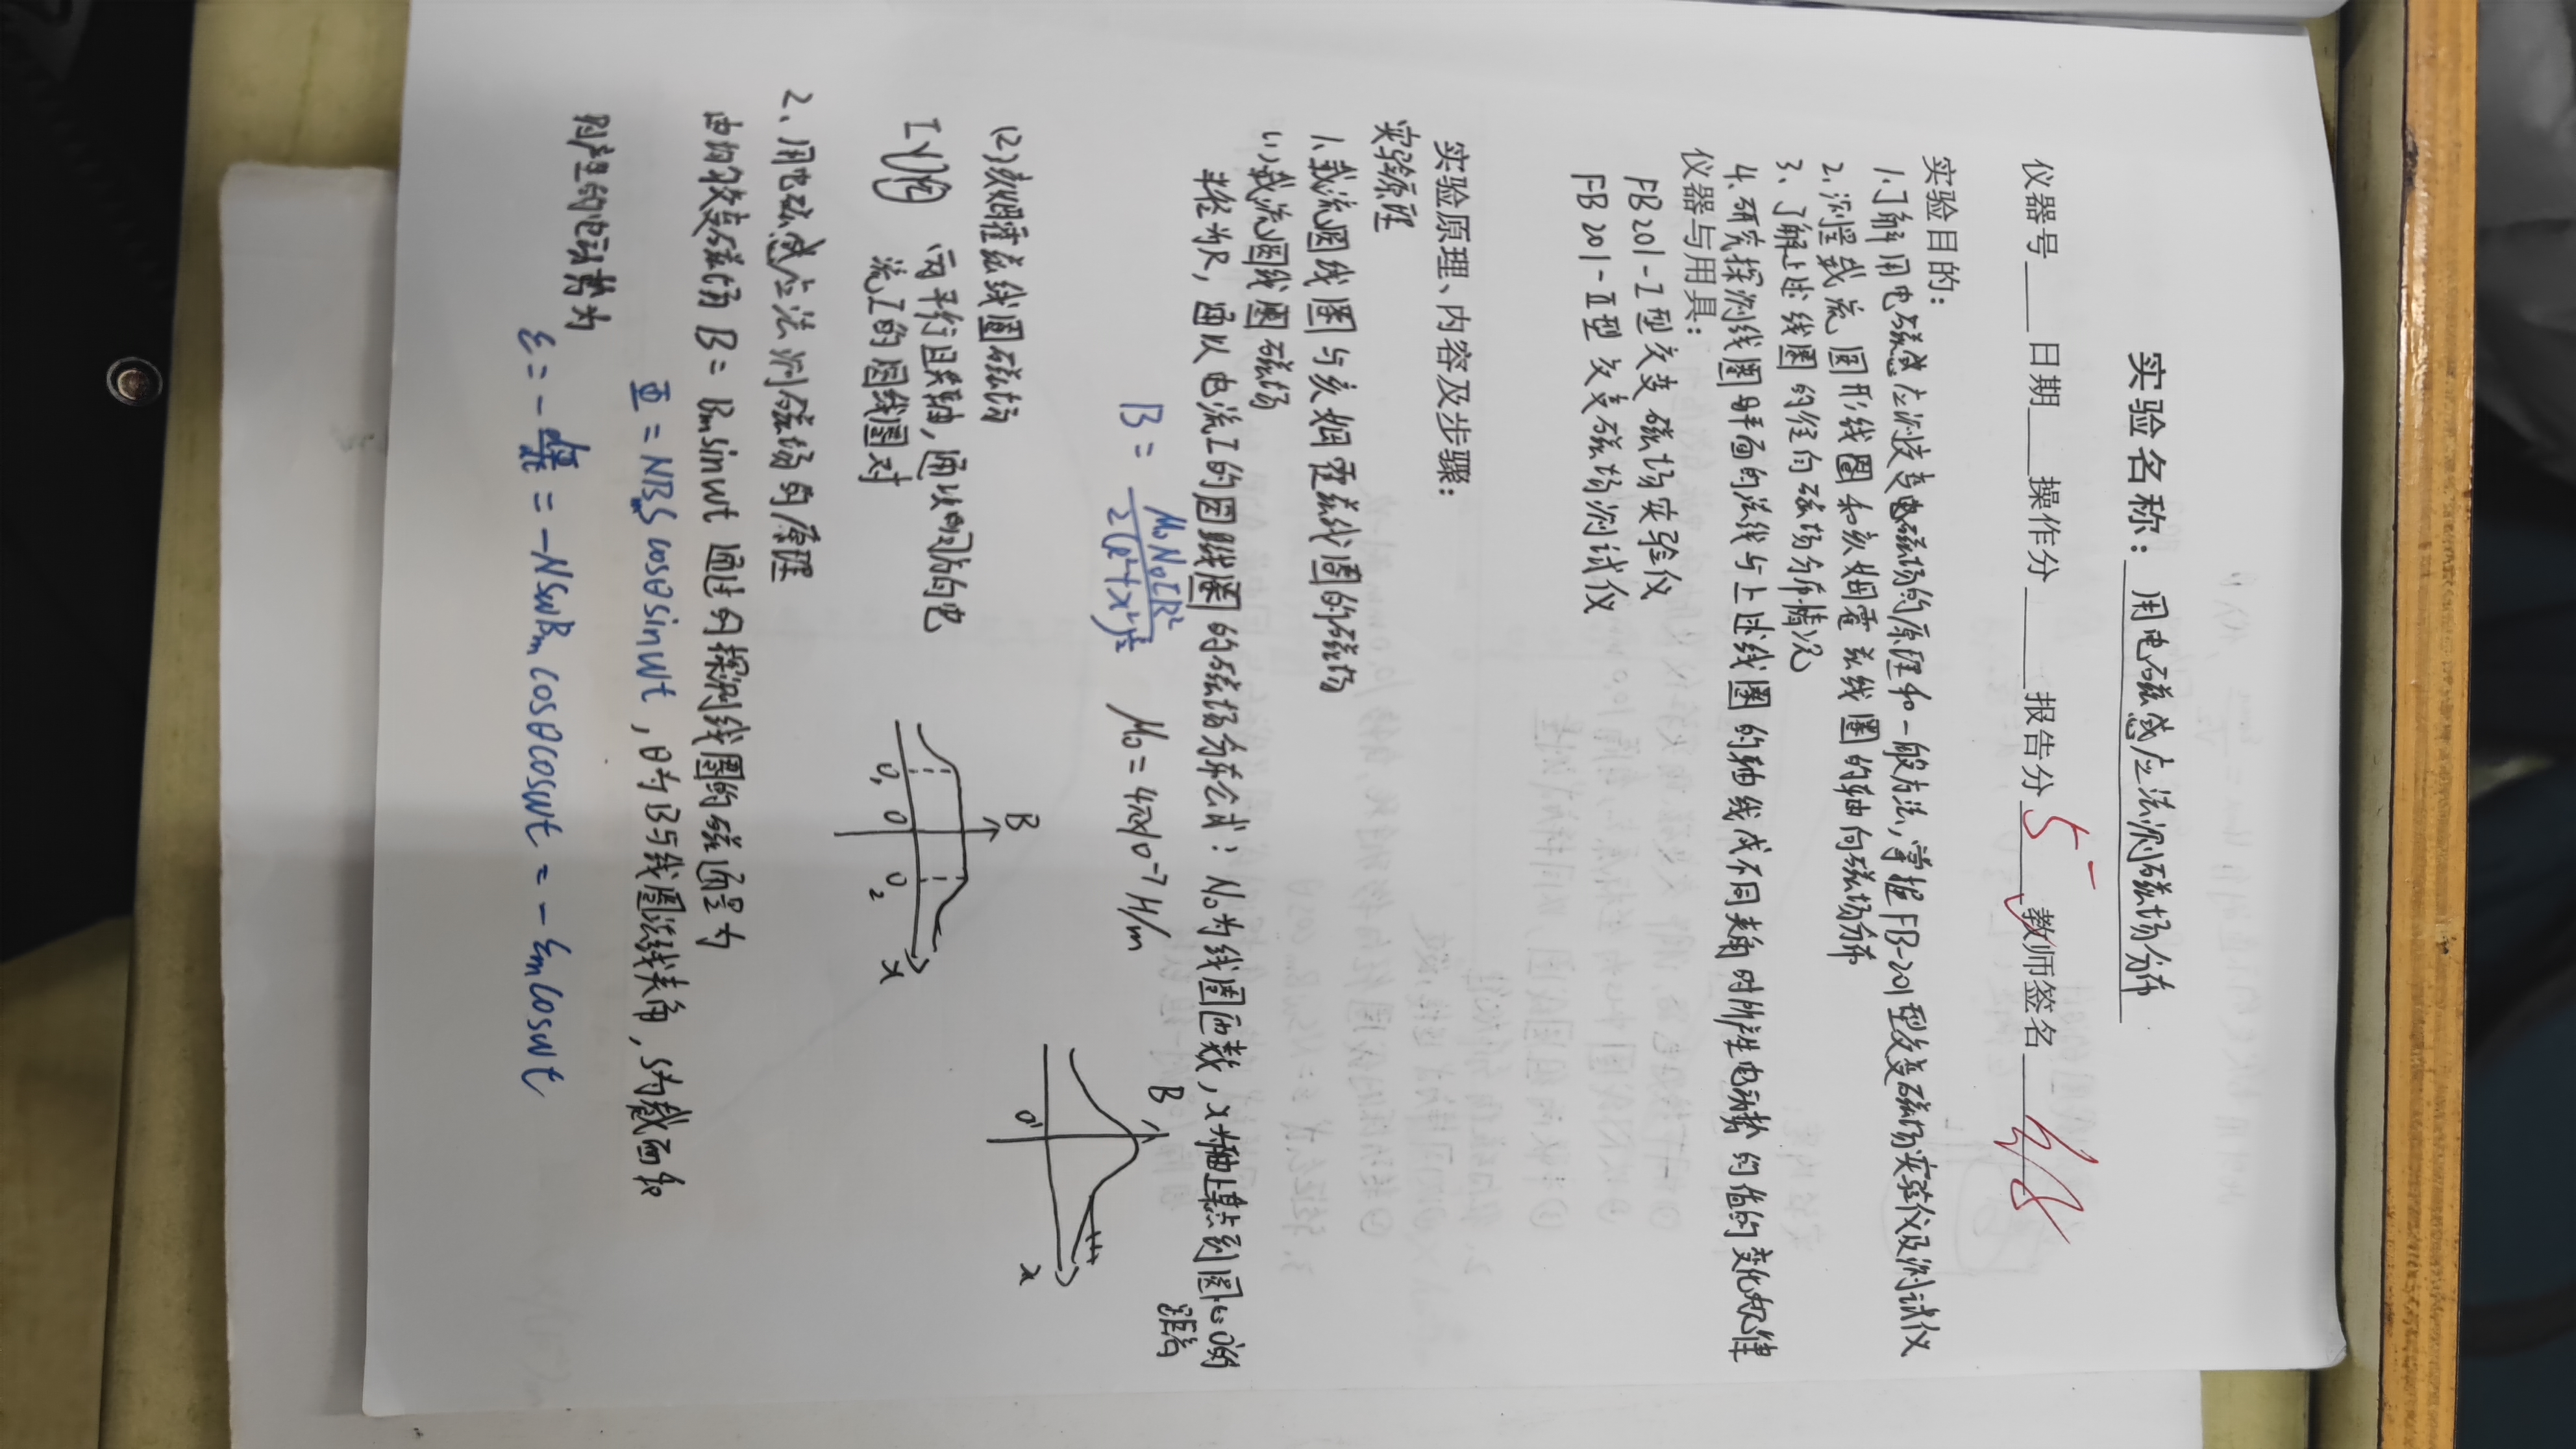 实验名称：用电磁感应法测磁场分布
仪器号____日期____操作分____报告分 5- 教师签名____
实验目的：
1.了解用电磁感应测交变电磁场的原理和一般方法，掌握FB-201型交变磁场实验仪及测试仪
2.测量载流圆形线圈和亥姆霍兹线圈的轴向磁场分布
3.了解上述线圈的径向磁场分布情况
4.研究探测线圈平面的法线与上述线圈的轴线成不同夹角时所产生电动势的值的变化规律
仪器与用具：
FB201-I型交变磁场实验仪
FB201-II型交变磁场测试仪
实验原理、内容及步骤：
实验原理
1.载流圆线圈与亥姆霍兹线圈的磁场
(1)载流圆线圈磁场
半径为R，通以电流I的圆线圈的磁场分布公式：N₀为线圈匝数，x为轴上某点到圆心o'的
距离
B = μ₀N₀IR² / 2(R²+x²)^3/2 μ₀=4π×10⁻⁷H/m
B
o'
x
(2)亥姆霍兹线圈磁场
I
两平行且共轴，通以同方向电
流I的圆线圈对
B
O₁ O O₂ x
2、用电磁感应法测磁场的原理
由均匀交变磁场 B=Bₘsinωt 通过的探测线圈的磁通量为
Φ=NBₘS cosθsinωt，θ为B与线圈法线夹角，S为截面积
则产生的电动势为
ε=-dΦ/dt=-NSωBₘcosθcosωt=-εₘcosωt